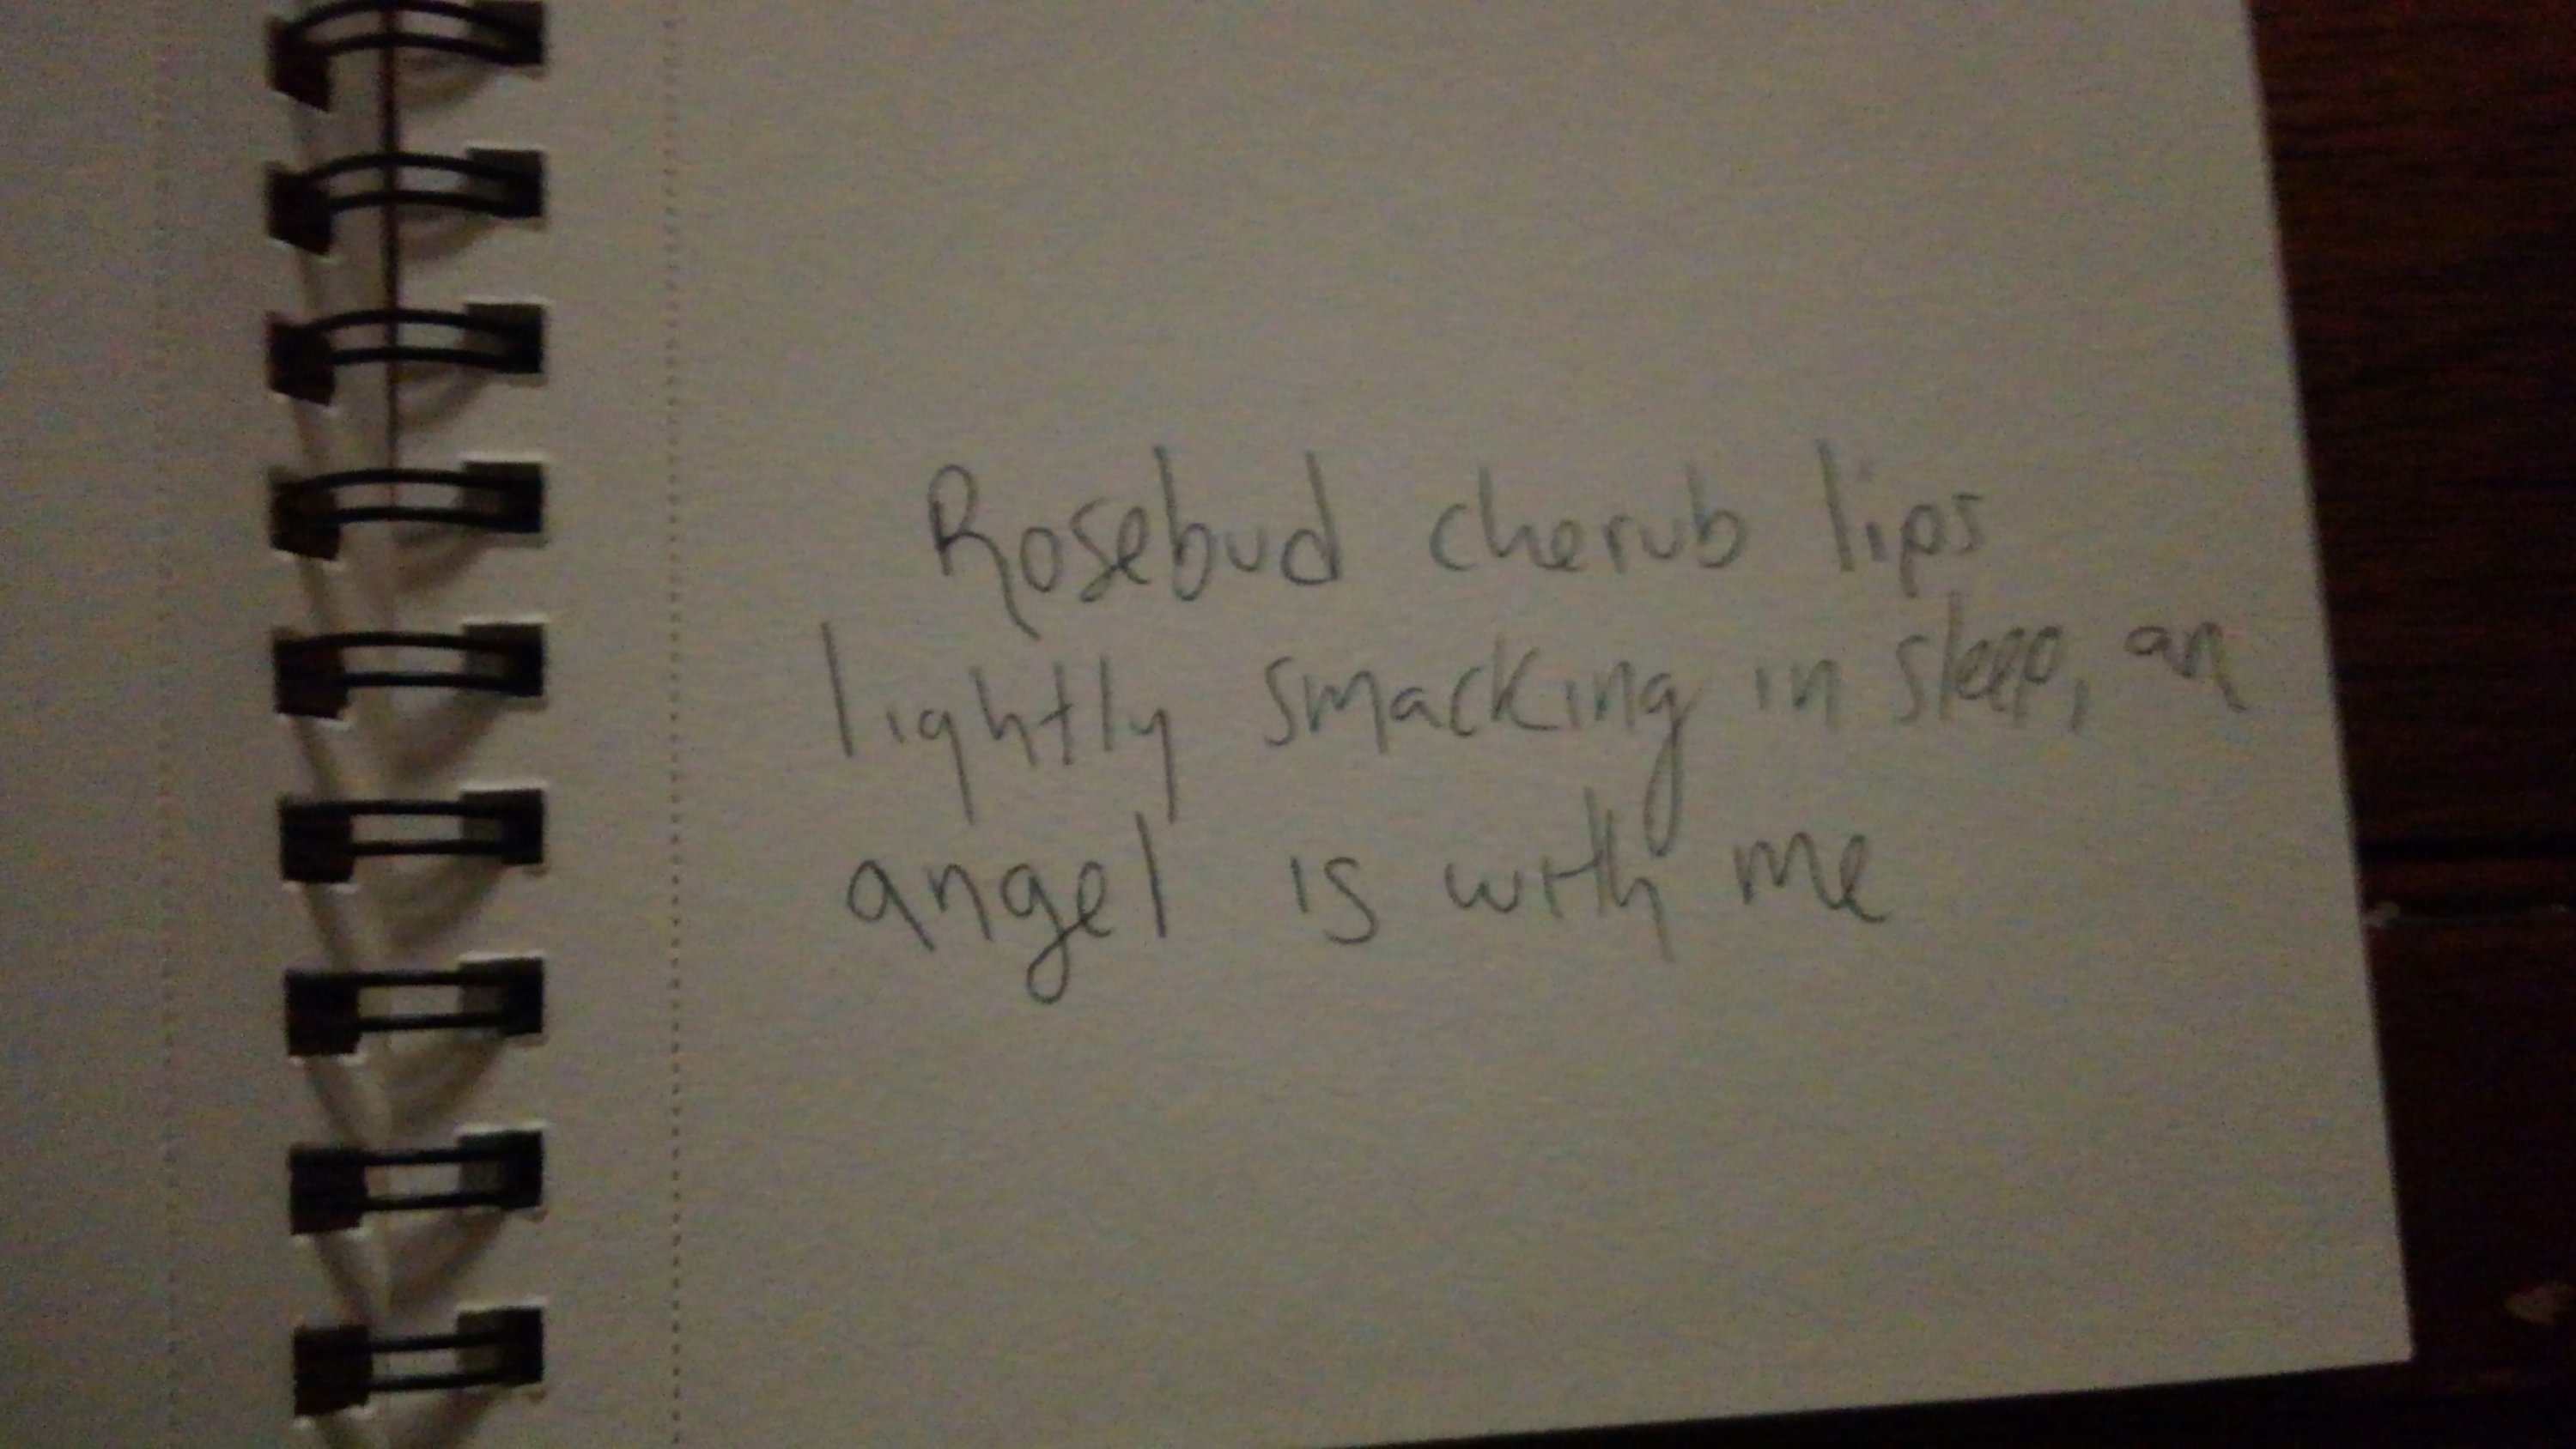 Rosebud cherub lips
lightly smacking in sleep, an
angel is with me